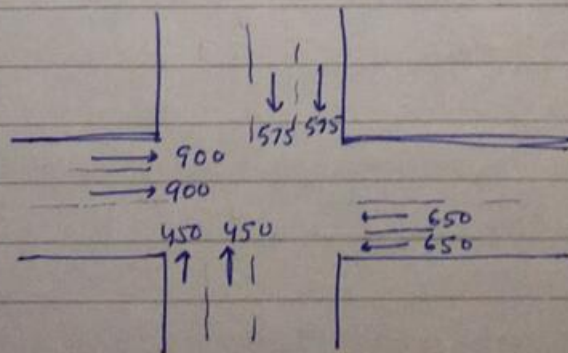 575 575
900
900
450 450
650
650